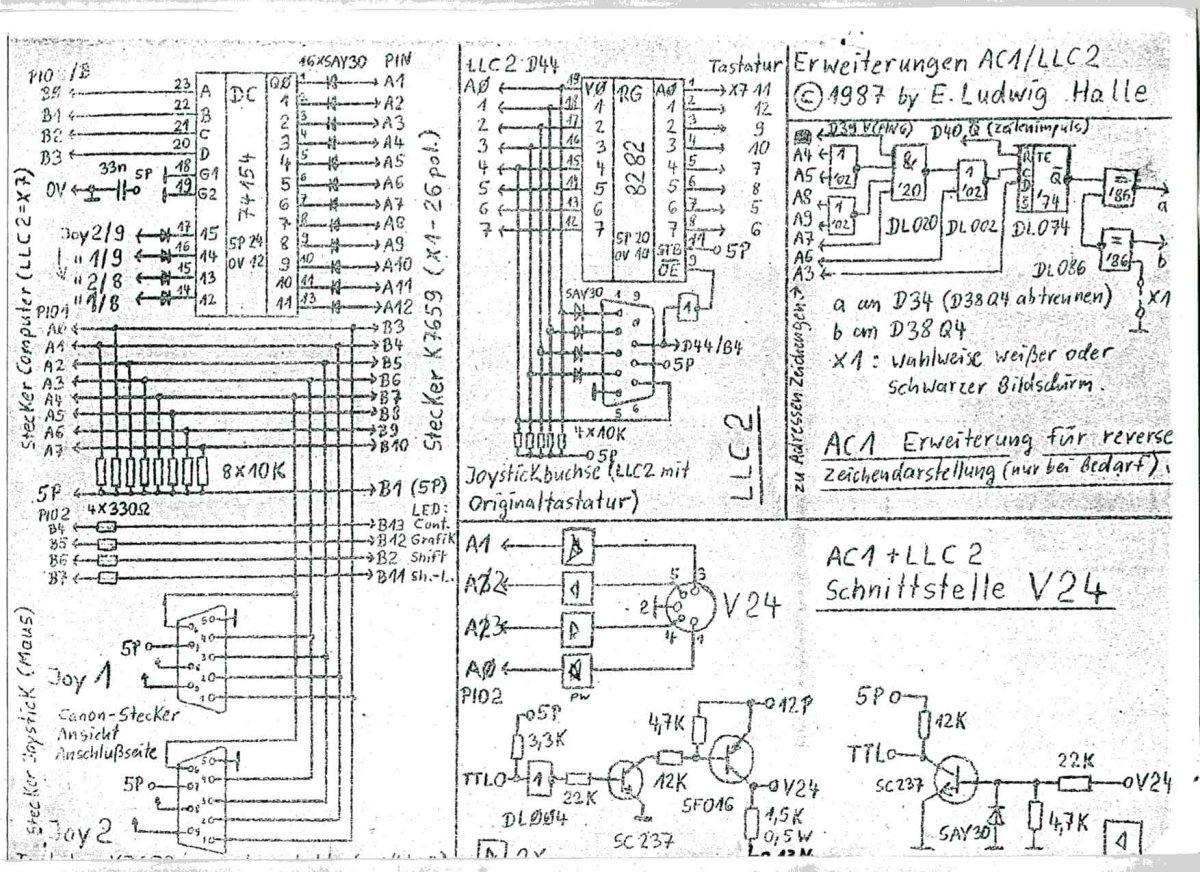 16×SAY30 PIN
23 A DC QØ 1 A1
B1 22 B 1 2 A2
B2 21 C 2 3 A3
B3 20 D 3 4 A4
33n 5P 18 G1 4 5 A5
0V 19 G2 5 6 A6
74154 6 7 A7
7 8 A8
Joy 2/9 17 15 5P 24 8 9 A9
" 1/9 16 14 0V 12 9 10 A10
" 2/8 15 13 10 11 A11
" 1/8 14 12 11 13 A12
Stecker Computer (LLC 2=X7)
Stecker K7659 (X1-26pol.)
PIO1
A0 B3
A1 B4
A2 B5
A3 B6
A4 B7
A5 B8
A6 B9
A7 B10
8×10K
5P B1 (5P)
PIO2 4×330Ω LED:
B4 B13 Cont.
B5 B12 Grafik
B6 B2 Shift
B7 B11 Sh.-L.
Stecker Joystick (Maus)
5P
Joy 1
Canon-Stecker
Ansicht
Anschlußseite
5P
Joy 2
LLC 2 D44 Tastatur
AØ 19 VØ RG AØ 1 X7 11
1 18 1 1 2 12
2 17 2 2 3 9
3 16 3 3 4 10
4 15 4 4 5 7
5 14 5 5 6 8
6 13 6 6 7 5
7 12 7 7 8 6
8282
5P 20 STB 11 5P
0V 10 OE 9
SAY30 1 9
1
D44/B4
5P
5 6
4×10K
5P
Joystickbuchse (LLC2 mit
Originaltastatur)
LLC 2
Erweiterungen AC1/LLC2
© 1987 by E. Ludwig Halle
D40 Q (Zeilenimpuls)
A4
A5
A8
A9
A7
A6
A3
1 '02
1 '02
& '20
1 '02
R TE Q
C
D
S '74
= '86
= '86
a
b
DL020 DL002 DL074
DL086
X1
a an D34 (D38Q4 abtrennen)
b am D38 Q4
X1: wahlweise weißer oder
schwarzer Bildschirm.
zu Adressen Zeichnungen
AC1 Erweiterung für reverse
Zeichendarstellung (nur bei Bedarf)
A1
A2
A3
AØ
PIO2
PW
5 3
2
4 1
V24
AC1 + LLC 2
Schnittstelle V24
5P
3,3K
TTL
1
DL004
22K
SC237
4,7K
12K
12P
SF016
V24
1,5K
0,5W
5P
12K
TTL
SC237
22K
V24
SAY30
4,7K